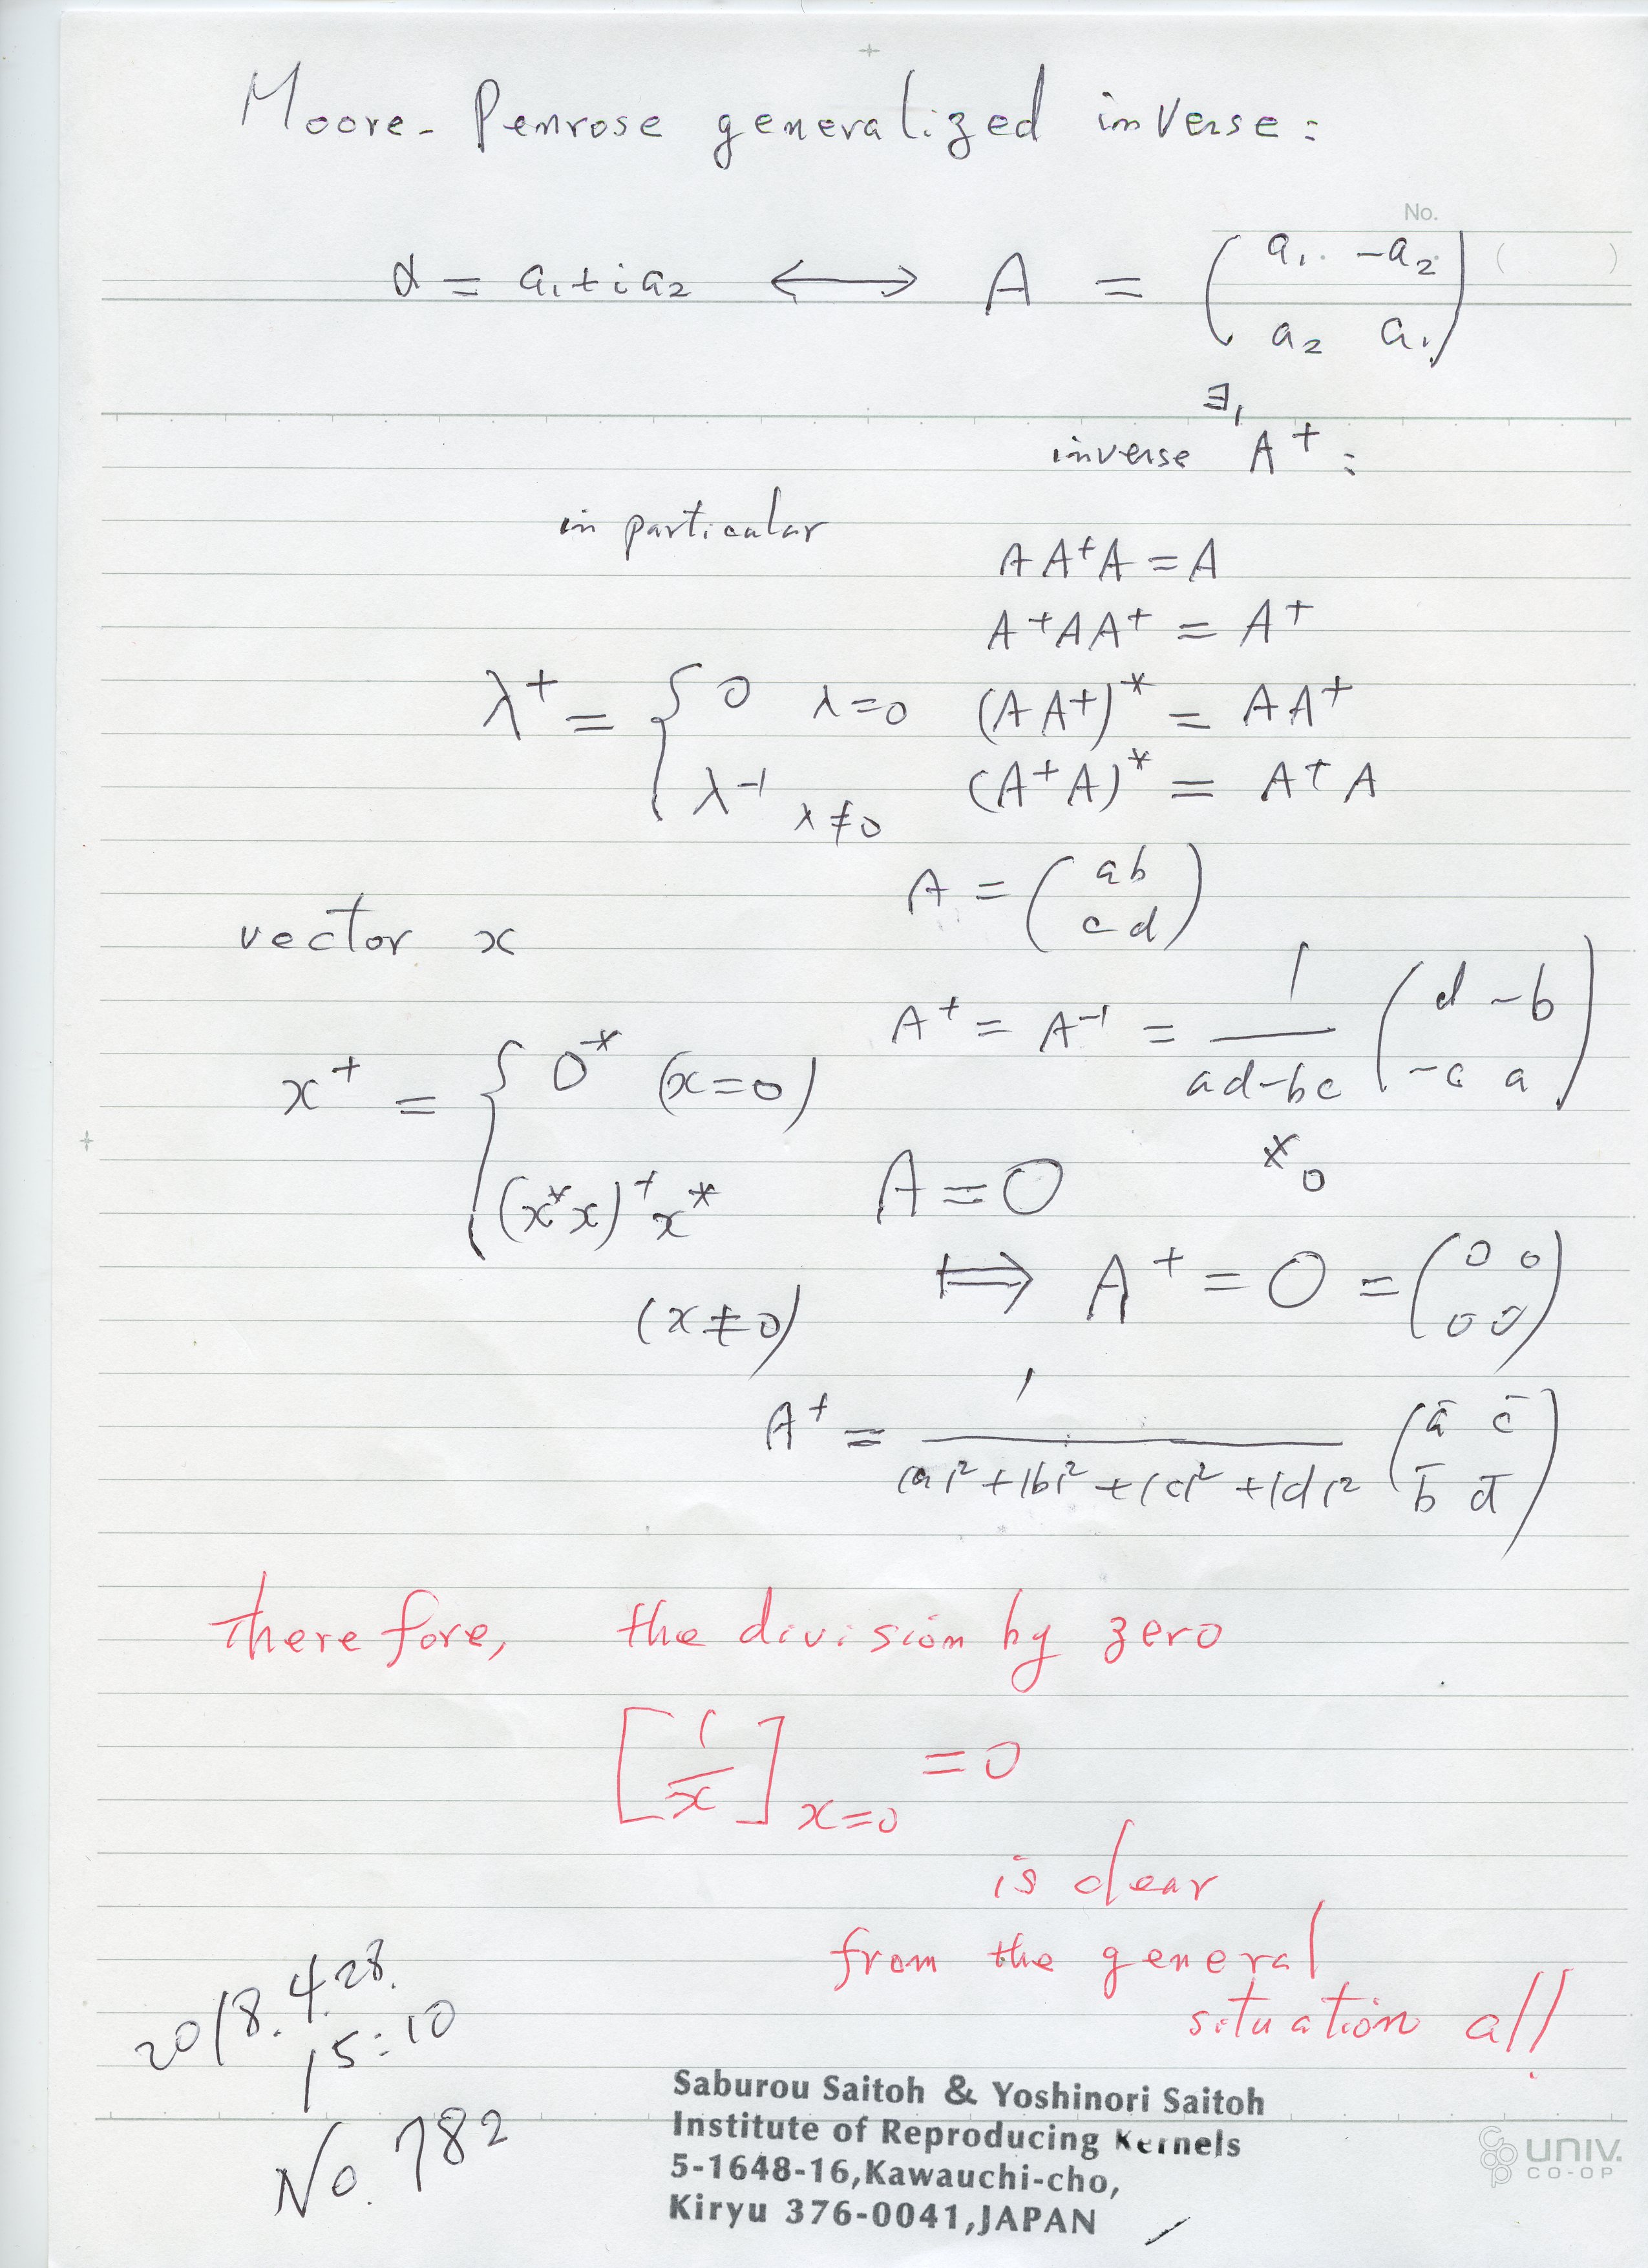 Moore-Penrose generalized inverse:
No.
α = a₁+ia₂ ⟷ A = (a₁ -a₂
a₂ a₁)
∃₁
inverse A⁺:
in particular
AA⁺A = A
A⁺AA⁺ = A⁺
λ⁺ = { 0 λ=0 (AA⁺)* = AA⁺
λ⁻¹ λ≠0 (A⁺A)* = A⁺A
A = (a b
c d)
vector x
A⁺ = A⁻¹ = 1/(ad-bc) (d -b
-c a)
x⁺ = { 0* (x=0)
≠0
(x*x)⁺x* A=0
(x≠0) ⟹ A⁺ = 0 = (0 0
0 0)
A⁺ = 1/(|a|²+|b|²+|c|²+|d|²) (ā c̄
b̄ d̄)
therefore, the division by zero
[1/x]x=0 = 0
is clear
from the general
situation all
2018.4.28.
15:10
No. 782
Saburou Saitoh & Yoshinori Saitoh
Institute of Reproducing Kernels
5-1648-16,Kawauchi-cho,
Kiryu 376-0041,JAPAN
UNIV.
CO-OP